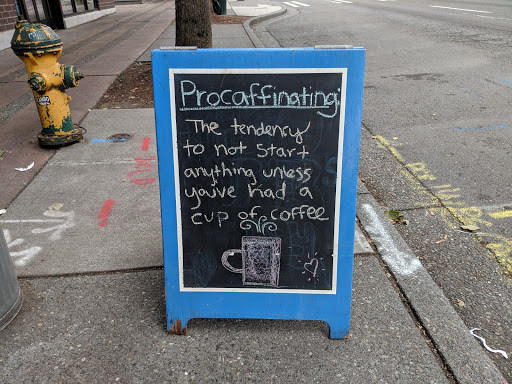 Procaffinating:
The tendency
to not start
anything unless
you've had a
cup of coffee